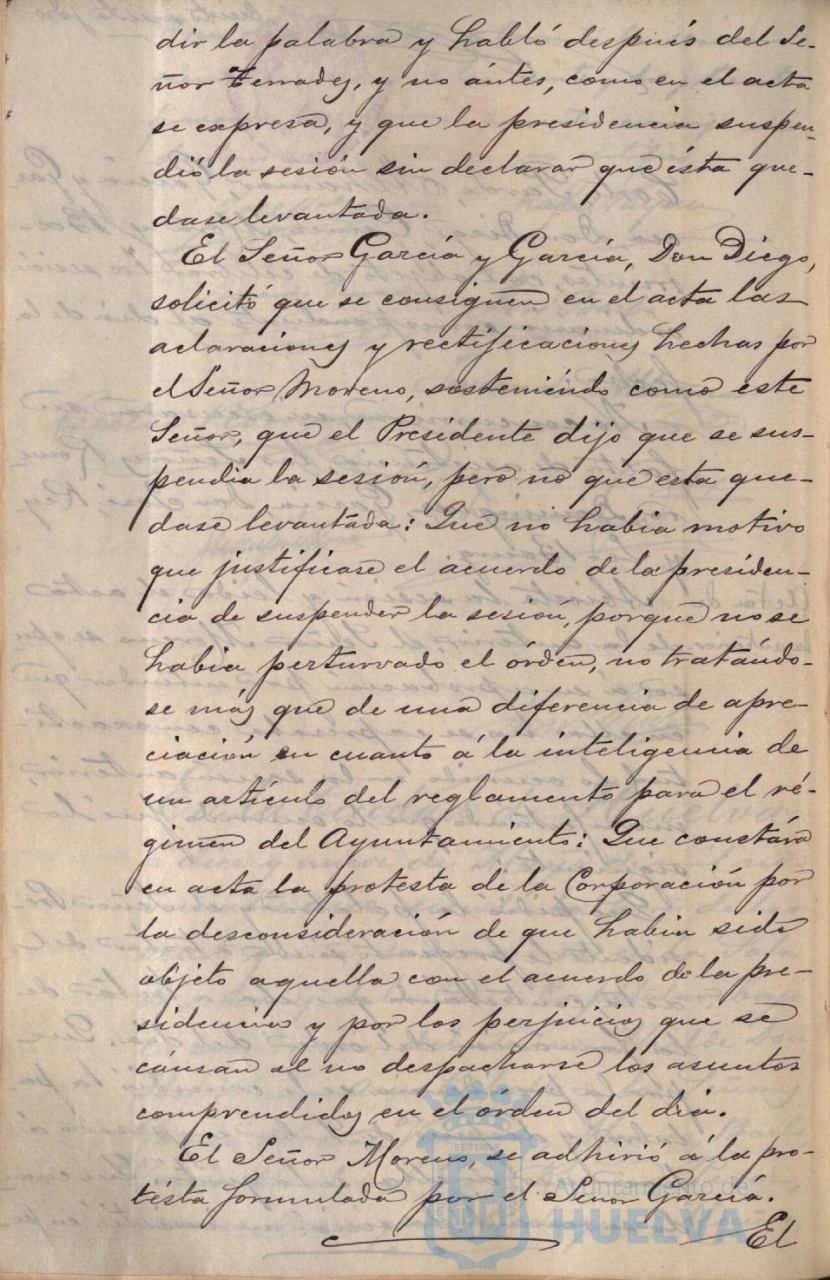 dir la palabra y habló después del Se-
ñor Terrades, y no ántes, como en el acta
se expresa, y que la presidencia suspen-
dió la sesión sin declarar que ésta que-
dase levantada.
El Señor García y García, Don Diego,
solicitó que se consignen en el acta las
aclaraciones y rectificaciones hechas por
el Señor Moreno, sosteniéndo como este
Señor, que el Presidente dijo que se sus-
pendia la sesión, pero no que esta que-
dase levantada: Que no habia motivo
que justificase el acuerdo de la presiden-
cia de suspender la sesión, porque no se
habia perturvado el órden, no tratándo-
se más que de una diferencia de apre-
ciación en cuanto á la inteligencia de
un artículo del reglamento para el ré-
gimen del Ayuntamiento: Que constára
en acta la protesta de la Corporación por
la desconsideración de que habia sido
objeto aquella con el acuerdo de la pre-
sidencia y por los perjuicios que se
cáusan al no despacharse los asuntos
comprendidos en el órden del dia.
El Señor Moreno, se adhirió á la pro-
testa formulada por el Señor García.
El
Ayuntamiento de
HUELVA